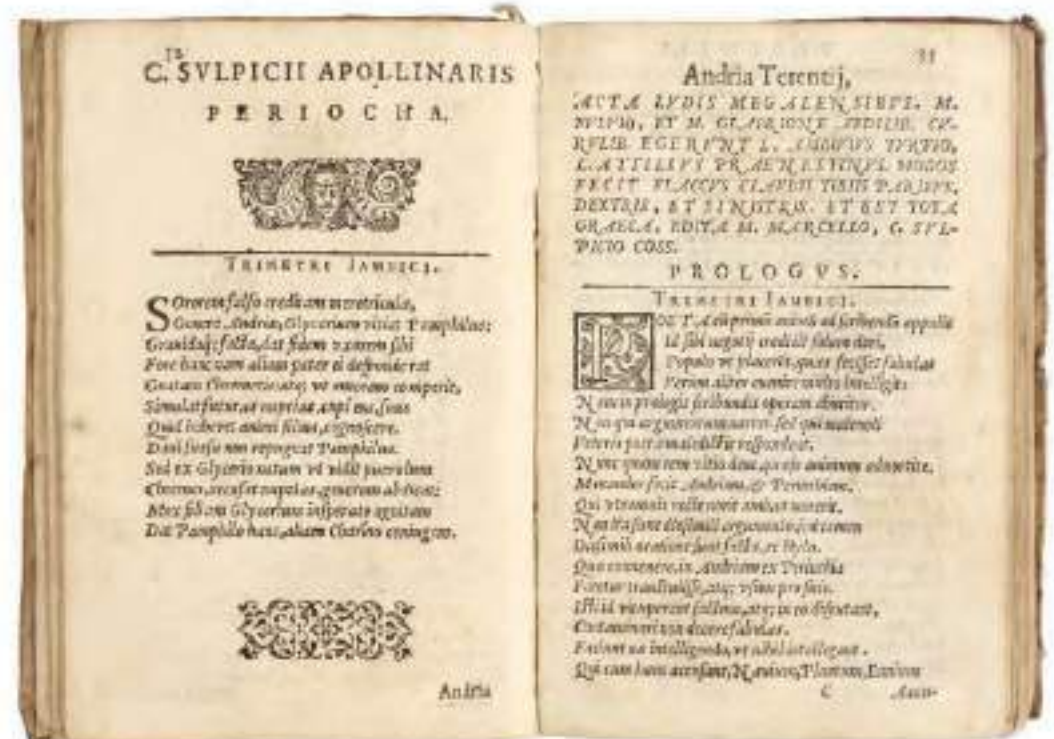 C. SVLPICII APOLLINARIS
PERIOCHA.
TRIMETRI IAMBICI.
SOrorem falso creditam meretriculæ,
Genere Andriæ, Glycerium vitiat Pamphilus:
Grauidaq; facta, dat fidem vxorem sibi
Fore hanc: nam aliam pater ei desponderat
Gnatam Chremetis: atq; vt amorem comperit,
Simulat futuras nuptias, cupiens, suus
Quid haberet animi filius, cognoscere.
Daui suasu non repugnat Pamphilus.
Sed ex Glycerio natum vt vidit puerulum
Chremes, recusat nuptias, generum abdicat:
Mox filiam Glycerium insperato agnitam
Dat Pamphilo hanc, aliam Charino coniugem.
Andria
Andria Terentij,
ACTA LVDIS MEGALENSIBVS. M.
FVLVIO, ET M. GLABRIONE AEDILIB. CV-
RVLIB. EGERVNT L. AMBIVIVS TVRPIO,
L. ATTILIVS PRAENESTINVS. MODOS
FECIT FLACCVS CLAVDII TIBIIS PARIBVS,
DEXTRIS, ET SINISTRIS. ET EST TOTA
GRAECA. EDITA M. MARCELLO, C. SVL-
PICIO COSS.
PROLOGVS.
TRIMETRI IAMBICI.
POETA cū primū animū ad scribendū appulit
Id sibi negotij credidit solum dari,
Populo vt placerēt, quas fecisset fabulas
Verum aliter euenire multo intelligit:
Nam in prologis scribundis operam abutitur.
Non qui argumentum narret sed qui maleuoli
Veteris poetæ maledictis respondeat.
Nunc quam rem vitio dent, quæso animum aduortite.
Menander fecit Andriam, & Perinthiam.
Qui vtramuis recte norit ambas nouerit.
Non ita sunt dissimili argumento, sed tamen
Dissimili oratione sunt factæ, ac stylo.
Quæ conuenere, in Andriam ex Perinthia
Fatetur transtulisse, atq; vsum pro suis.
Isti id vituperant factum, atq; in eo disputant,
Contaminari non decere fabulas.
Faciunt næ intelligendo, vt nihil intellegant.
Qui cum hunc accusant, Næuium, Plautum, Ennium
C
Accu-